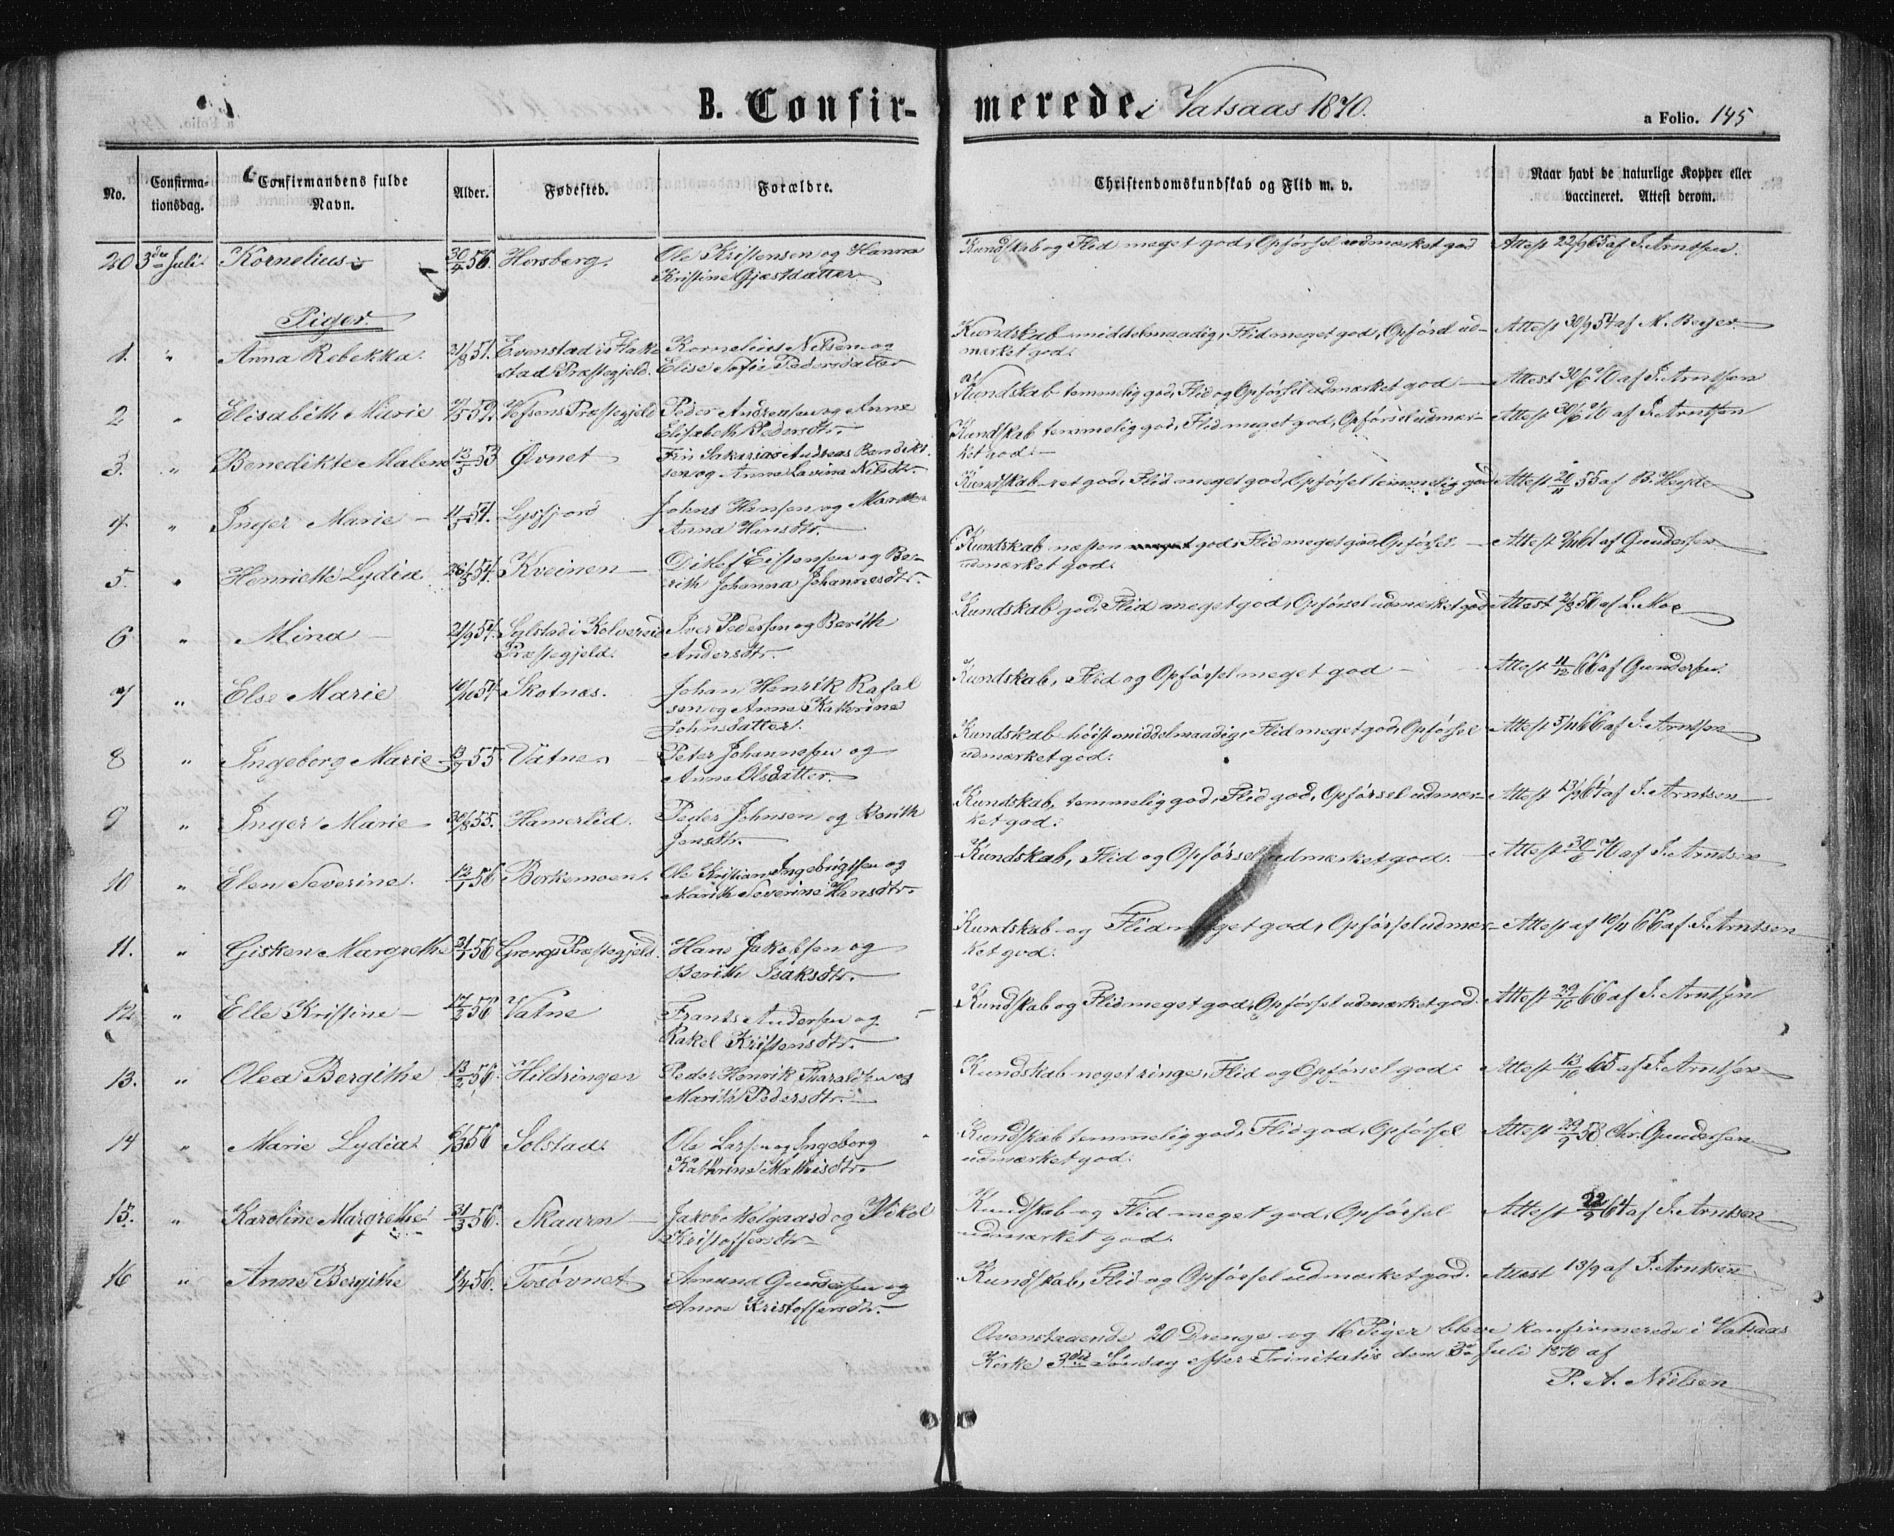 B. Confirmerede i Vatsaas 1870. a Folio. 145
No. Confirmationsdag. Confirmandens fulde Navn. Alder. Fødested. Forældre. Christendomskundskab og Flid m. v. Naar havt de naturlige Kopper eller vaccineret. Attest derom.
20 3die Juli. Kornelius 30/4 56. Horsberg. Ole Kristensen og Hanna Kristine Gjæstdatter Kundskab og Flid meget god, Opførsel udmærket god Attest 22/9 65 af J. Arntsen.
Piger.
1. " Anna Rebekka. 31/8 51. Evenstad i Flakstad Præstegjeld. Kornelius Nilsen og Elise Sofie Pedersdatter Kundskab middelmaadig, Flid meget god, Opførsel udmærket god. Attest 30/9 54 af M. Beyer
2 " Elisabeth Marie Vefsens Præstegjeld Peder Andreassen og Anne Elisabeth Pedersdtr. Kundskab temmelig god, Flid og Opførsel udmærket god Attest 30/6 70 af J. Arntsen
3. " Benedikte Malene 13/5 53 Øvnet Fin Sakarias Andreas Bendiktsen og Anna Lavina Nilsdtr. Kundskab temmelig god, Flid meget god, Opførsel udmærket god. Attest 30/6 70 af J. Arntsen
4 " Inger Marie 11/5 54. Lysfjord Johns Hansen og Anna Hansdtr. Kundskab ret god, Flid meget god, Opførsel temmelig god Attest 20/11 55 af B. Heyde
5. " Henriette Lydia Kveinen Ditlef Eistensen og Berith Johanna Johannesdtr. Kundskab næsten meget god, Flid meget god, Opførsel udmærket god. Attest af Gundersen
6 " Mina 21/9 54. Sylstad i Kolvereid Præstegjeld. Iver Pedersen og Berith Andersdtr. Kundskab god, Flid meget god, Opførsel udmærket god Attest 2/8 56 af L. Moe
7 " Else Marie 16/10 54 Skotnas. Johan Henrik Rafalsen og Anne Katherine Johnsdatter. Kundskab, Flid og Opførsel meget god Attest 11/12 66 af Gundersen.
8 " Ingeborg Marie 13/7 55 Vatne Peter Johannesen og Anne Olsdatter. Kundskab høist middelmaadig, Flid meget god, Opførsel udmærket god. Attest 5/11 66 af J. Arntsen
9 " Inger Marie 30/8 55. Hamerlid. Peder Johnsen og Berith Jonsdtr. Kundskab, temmelig god, Flid god, Opførsel udmærket god. Attest 13/9 64 af J. Arntsen
10 " Elen Severine. 12/1 56 Borkemoen. Ole Kristian Ingebrigtsen og Marith Severine Hansdtr. Kundskab, Flid og Opførsel udmærket god. Attest 30/6 70 af J. Arntsen
11. " Gisken Margrethe 21/1 56 Grongs Præstegjeld. Hans Jakobsen og Berith Isaksdtr. Kundskab og Flid meget god, Opførsel udmærket god. Attest af 10/11 66 af J. Arntsen
12. " Elle Kristine 17/2 56 Vatne Frants Andersen og Rakel Kristensdtr. Kundskab og Flid meget god, Opførsel udmærket god. Attest 29/10 66 af J. Arntsen
13. " Olea Bergithe 13/2 56. Hildringen Peder Henrik Tharaldsen og Marith Pedersdtr. Kundskab noget ringe, Flid og Opførsel god. Attest 13/10 65 af J. Arntsen
14 " Marie Lydia. 6/3 56 Solstad. Ole Larsen og Ingeborg Kathrine Mathisdtr. Kundskab temmelig god, Flid god, Opførsel udmærket god. Attest 29/7 58 Chr. Gundersen
15. " Karoline Margrethe 31/3 56. Skaarn Jakob Melgaard og Nikol Kristoffersdtr. Kundskab og Flid meget god, Opførsel udmærket god. Attest 22/9 64 af J. Arntsen
16 " Anne Bergithe 1/4 56. Tosøvnet Amund Gundersen og Anne Kristoffersdtr. Kundskab, Flid og Opførsel udmærket god. Attest 13/9 af J. Arntsen
Ovenstaaende 20 Drenge og 16 Piger bleve konfirmerede i Vatsaas
Kirke 3die Søndag efter Trinitatis den 3die Juli 1870 af
P. A. Nielsen